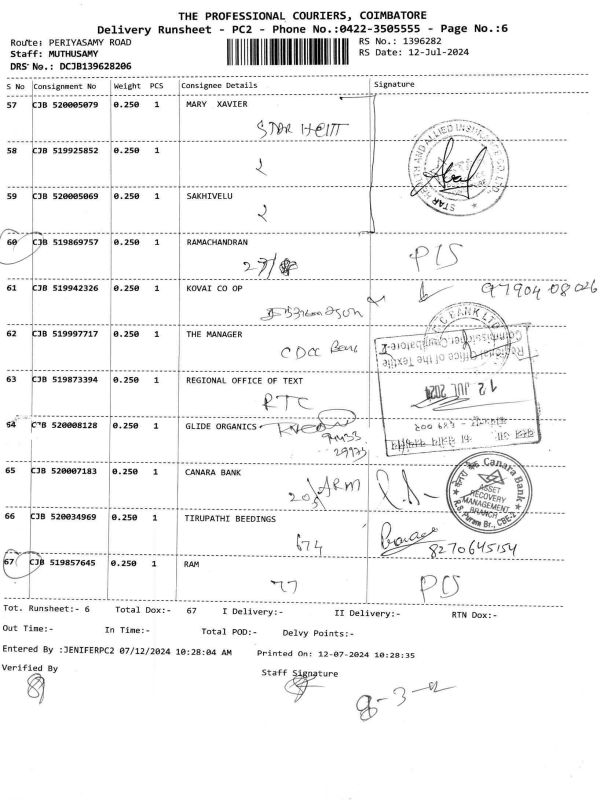 THE PROFESSIONAL COURIERS, COIMBATORE
Delivery Runsheet - PC2 - Phone No.:0422-3505555 - Page No.:6
Route: PERIYASAMY ROAD RS No.: 1396282
Staff: MUTHUSAMY RS Date: 12-Jul-2024
DRS No.: DCJB139628206
S No Consignment No Weight PCS Consignee Details Signature
57 CJB 520005079 0.250 1 MARY XAVIER
STAR
58 CJB 519925852 0.250 1
STAR HEALTH AND ALLIED INSURANCE CO. LTD.
59 CJB 520005069 0.250 1 SAKHIVELU
60 CJB 519869757 0.250 1 RAMACHANDRAN
61 CJB 519942326 0.250 1 KOVAI CO OP
97904 08026
62 CJB 519997717 0.250 1 THE MANAGER
CDCC Bank
C BANK LTD
Regional Office of the Textile
Commissioner, Coimbatore-2
12 JUL 2024
63 CJB 519873394 0.250 1 REGIONAL OFFICE OF TEXT
RTC
64 CJB 520008128 0.250 1 GLIDE ORGANICS
65 CJB 520007183 0.250 1 CANARA BANK
ARM
Canara Bank
ASSET
RECOVERY
MANAGEMENT
BRANCH
R.S. Puram Br., CBE-2
66 CJB 520034969 0.250 1 TIRUPATHI BEEDINGS
674
8270645154
67 CJB 519857645 0.250 1 RAM
77
Tot. Runsheet:- 6 Total Dox:- 67 I Delivery:- II Delivery:- RTN Dox:-
Out Time:- In Time:- Total POD:- Delvy Points:-
Entered By :JENIFERPC2 07/12/2024 10:28:04 AM Printed On: 12-07-2024 10:28:35
Verified By Staff Signature